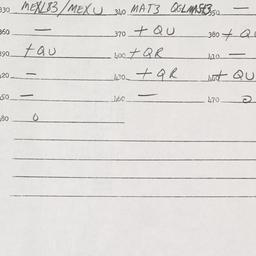 330 MEXLB3/MEXU 340 MAT3 350 —
360 — 370 + QU 380 + QU
390 + QU 400 + QR 410 —
420 — 430 + QR 440 + QU
450 — 460 — 470
480 0